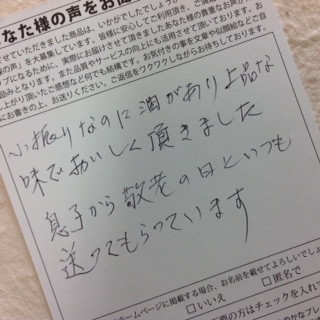 なた様の声をお聞
させていただきました商品は、いかがでしたでしょう
の声」を大募集しています。皆様に安心してご利用頂き、ご満
プになるために、実際にお届けさせて頂きましたあなた様の貴重なお声が
励みとなります。また品質やサービスの向上にも活用させて頂いております。
上がり頂いたご感想など何でも結構です。お気付きの事を文章や似顔絵などご自
にお書きの上、お送りください。ご返信をワクワクしながらお待ちしております。
小振りなのに油があり上品な
味でおいしく頂きました
息子から敬老の日といつも
送ってもらっています
ホームページに掲載する場合、お名前を載せてよろしいでしょ
□いいえ □匿名で
の方はチェックを入れ